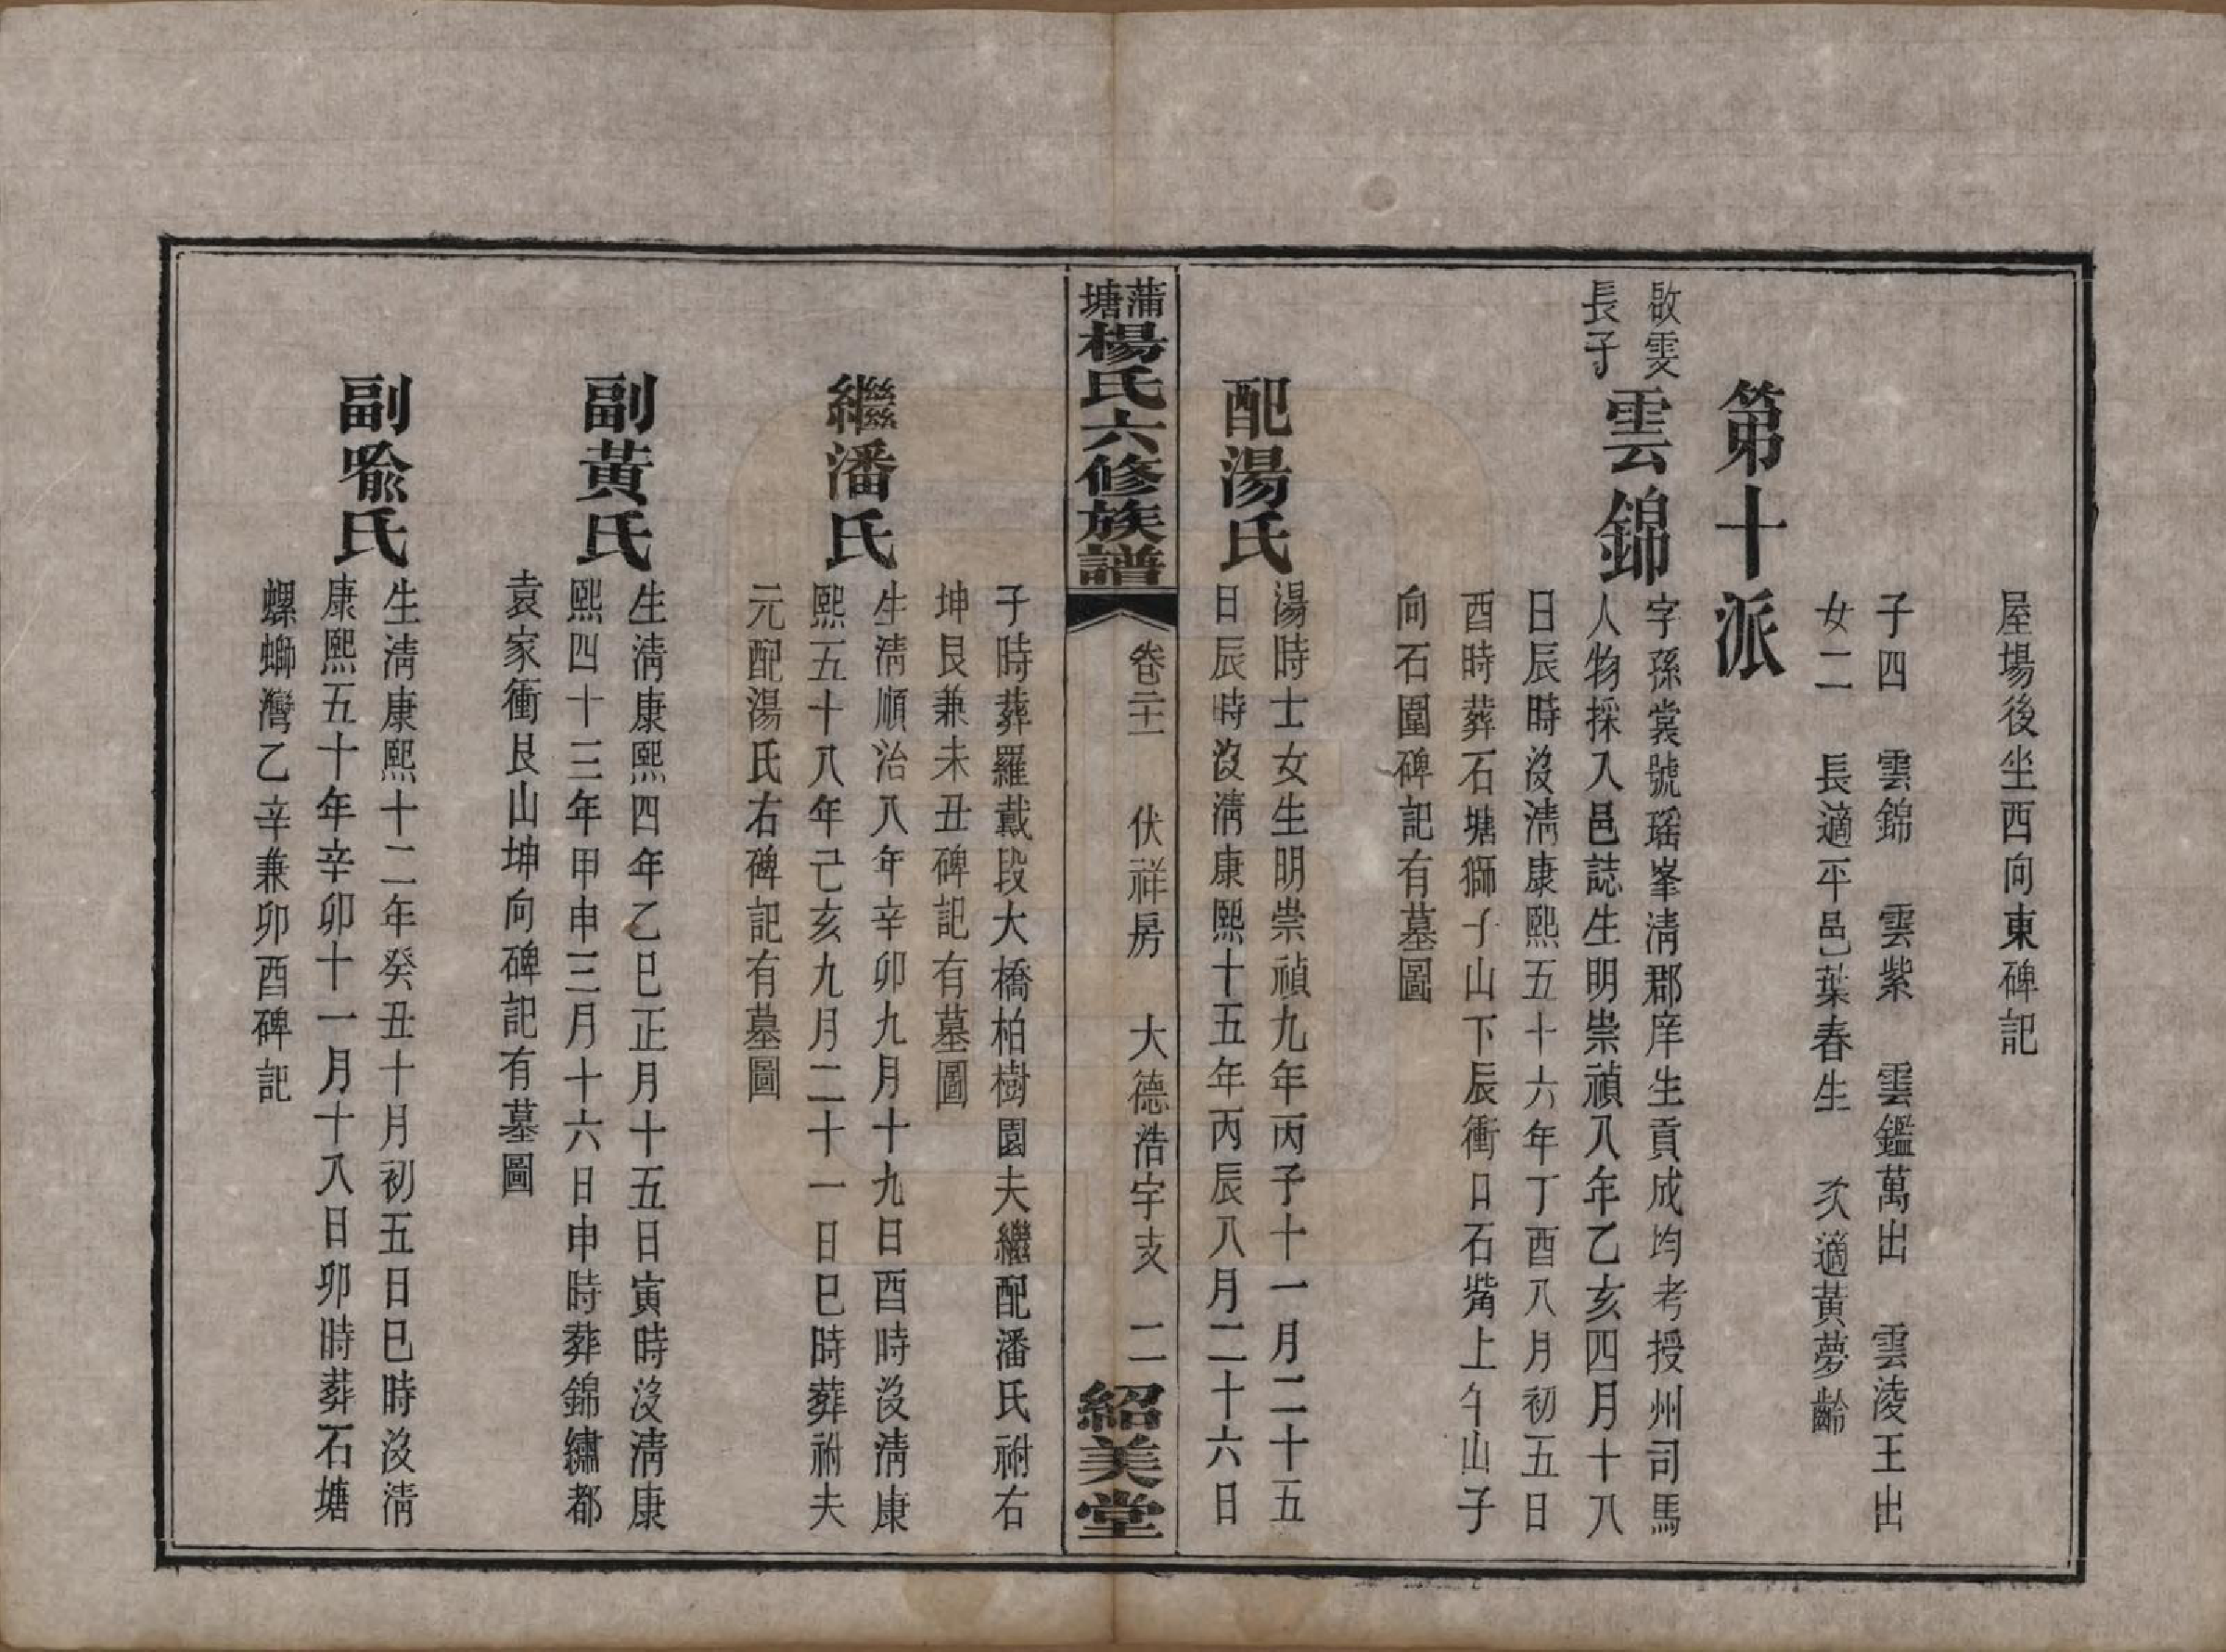 屋場後坐西向東碑記
子四　雲錦　雲紫　雲鑑萬出　雲淩王出
女二　長適平邑葉春生　次適黃夢齡
第十派
啟雯
長子
雲錦
字孫裳號瑶峯清郡庠生貢成均考授州司馬
人物採入邑誌生明崇禎八年乙亥四月十八
日辰時沒清康熙五十六年丁酉八月初五日
酉時葬石塘獅子山下辰衝口石嘴上午山子
向石圍碑記有墓圖
配湯氏
湯時士女生明崇禎九年丙子十一月二十五
日辰時沒清康熙十五年丙辰八月二十六日
蒲塘楊氏六修族譜　卷二十一　伏祥房　大德浩宇支　二　紹美堂
子時葬羅戴段大橋柏樹園夫繼配潘氏祔右
坤艮兼未丑碑記有墓圖
繼潘氏
生清順治八年辛卯九月十九日酉時沒清康
熙五十八年己亥九月二十一日巳時葬祔夫
元配湯氏右碑記有墓圖
副黃氏
生清康熙四年乙巳正月十五日寅時沒清康
熙四十三年甲申三月十六日申時葬錦繡都
袁家衝艮山坤向碑記有墓圖
副喩氏
生清康熙十二年癸丑十月初五日巳時沒清
康熙五十年辛卯十一月十八日卯時葬石塘
螺螄灣乙辛兼卯酉碑記